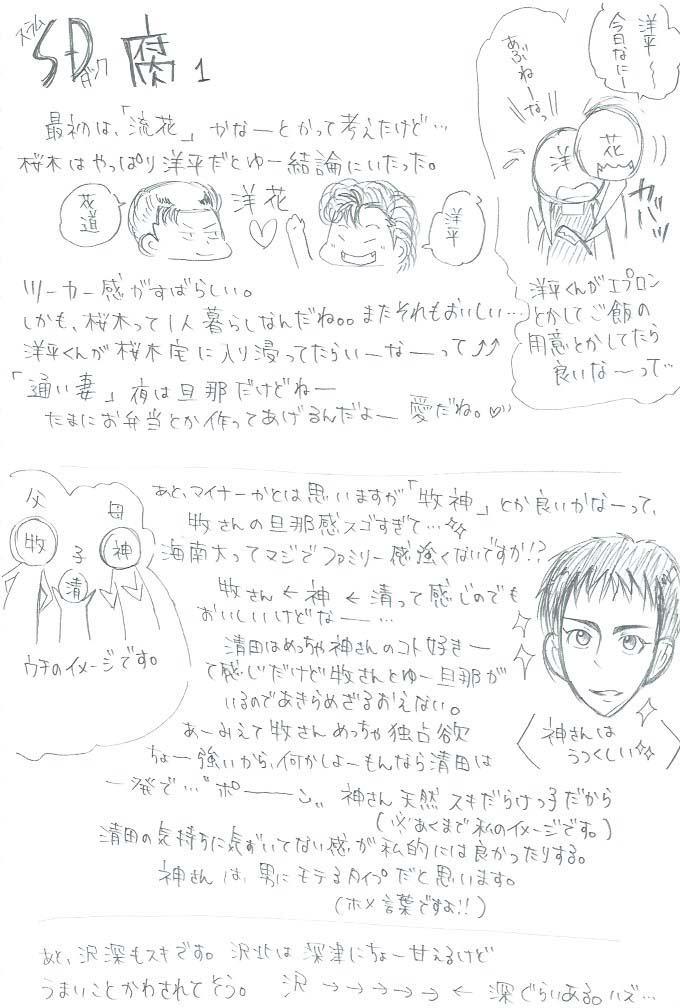 スラム
SD 腐 1
ダンク
最初は、「流花」かなーとかって考えたけど…
桜木はやっぱり洋平だとゆー結論にいたった。
花道
洋花
洋平
ツーカー感がすばらしい。
しかも、桜木って1人暮らしなんだね。。またそれもおいしい…
洋平くんが桜木宅に入り浸ってたらいーなーって⤴⤴
「通い妻」夜は旦那だけどねー
たまにお弁当とか作ってあげるんだよー 愛だね。♡
洋平〜
今日なにー
あぶねーなっ
洋
花
ガバッ
洋平くんがエプロン
とかしてご飯の
用意とかしてたら
良いな〜って…
あと、マイナーかとは思いますが「牧神」とか良いかなーって、
牧さんの旦那感スゴすぎて…
海南大ってマジでファミリー感強くないですか!?
父
母
牧
子
神
清
ウチのイメージです。
牧さん ← 神 ← 清って感じのでも
おいしいけどなー…
清田はめっちゃ神さんのコト好きー
て感じだけど牧さんとゆー旦那が
いるのであきらめざるおえない。
あーみえて牧さんめっちゃ独占欲
ちょー強いから、何かしよーもんなら清田は
一発で…"ポーーーい" 神さん天然スキだらけっ子だから
(※あくまで私のイメージです。)
清田の気持ちに気ずいてない感が私的には良かったりする。
神さんは、男にモテるタイプだと思います。
(ホメ言葉ですよ!!)
神さんは
うつくしい
あと、沢深もスキです。沢北は深津にちょー甘えるけど
うまいことかわされてそう。 沢 →→→→→ ← 深ぐらいある。ハズ…